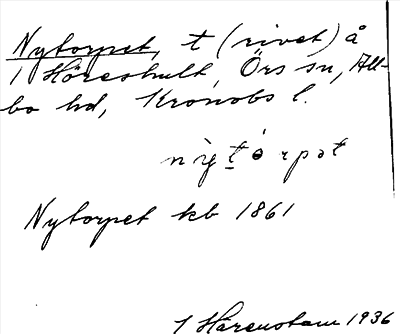 Nytorpet, t (rivet) å
1 Höreshult, Örs sn, All-
bo hd, Kronobs l.
nỳt̠ó rpət
Nytorpet kb 1861
1 Härenstam 1936